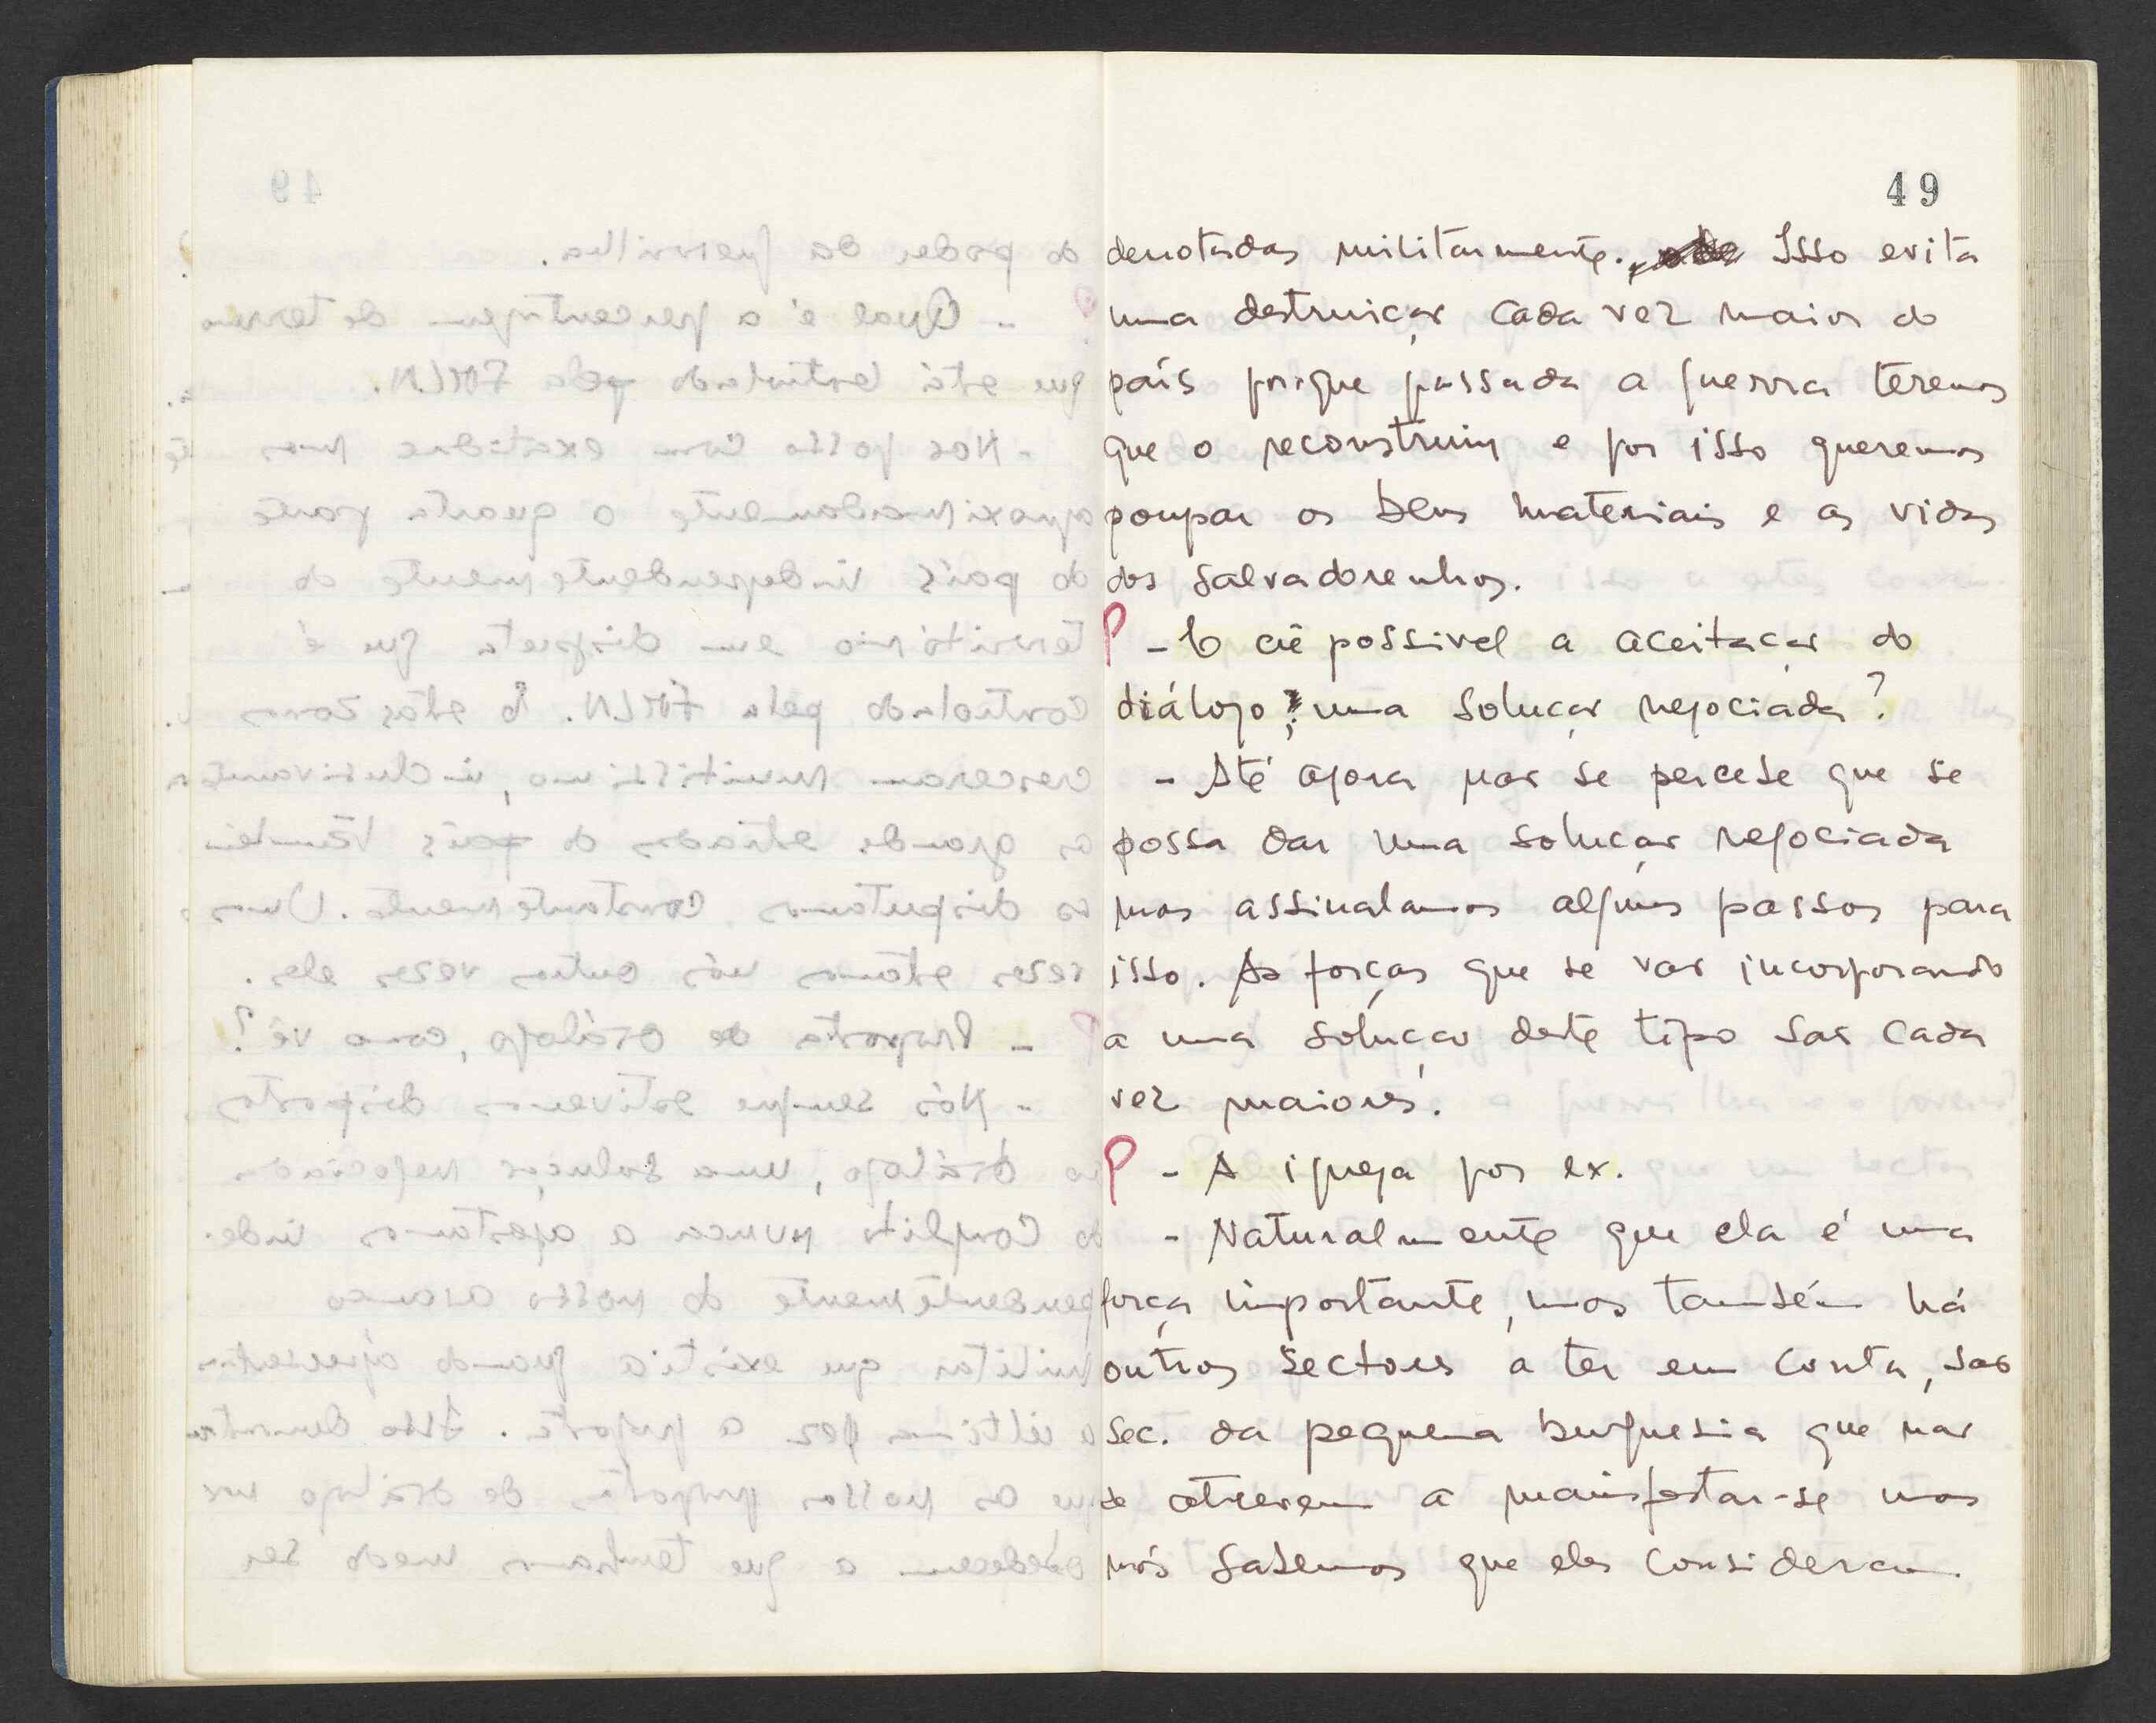 49
derrotadas militarmente. Isso evita
uma destruição cada vez maior do
país porque passada a guerra teremos
que o reconstruir e por isso queremos
poupar os bens materiais e as vidas
dos salvadorenhos.
P - E crê possivel a aceitação do
diálogo; uma solução negociada?
- Até agora não se percebe que se
possa dar uma solução negociada
mas assinalamos alguns passos para
isso. As forças que se vão incorporando
a uma solução deste tipo são cada
vez maiores.
P - A igreja por ex.
- Naturalmente que ela é uma
força importante, mas também há
outros sectores a ter em conta, são
sec. da pequena burguesia que não
se atrevem a manifestar-se mas
nós sabemos que eles consideram